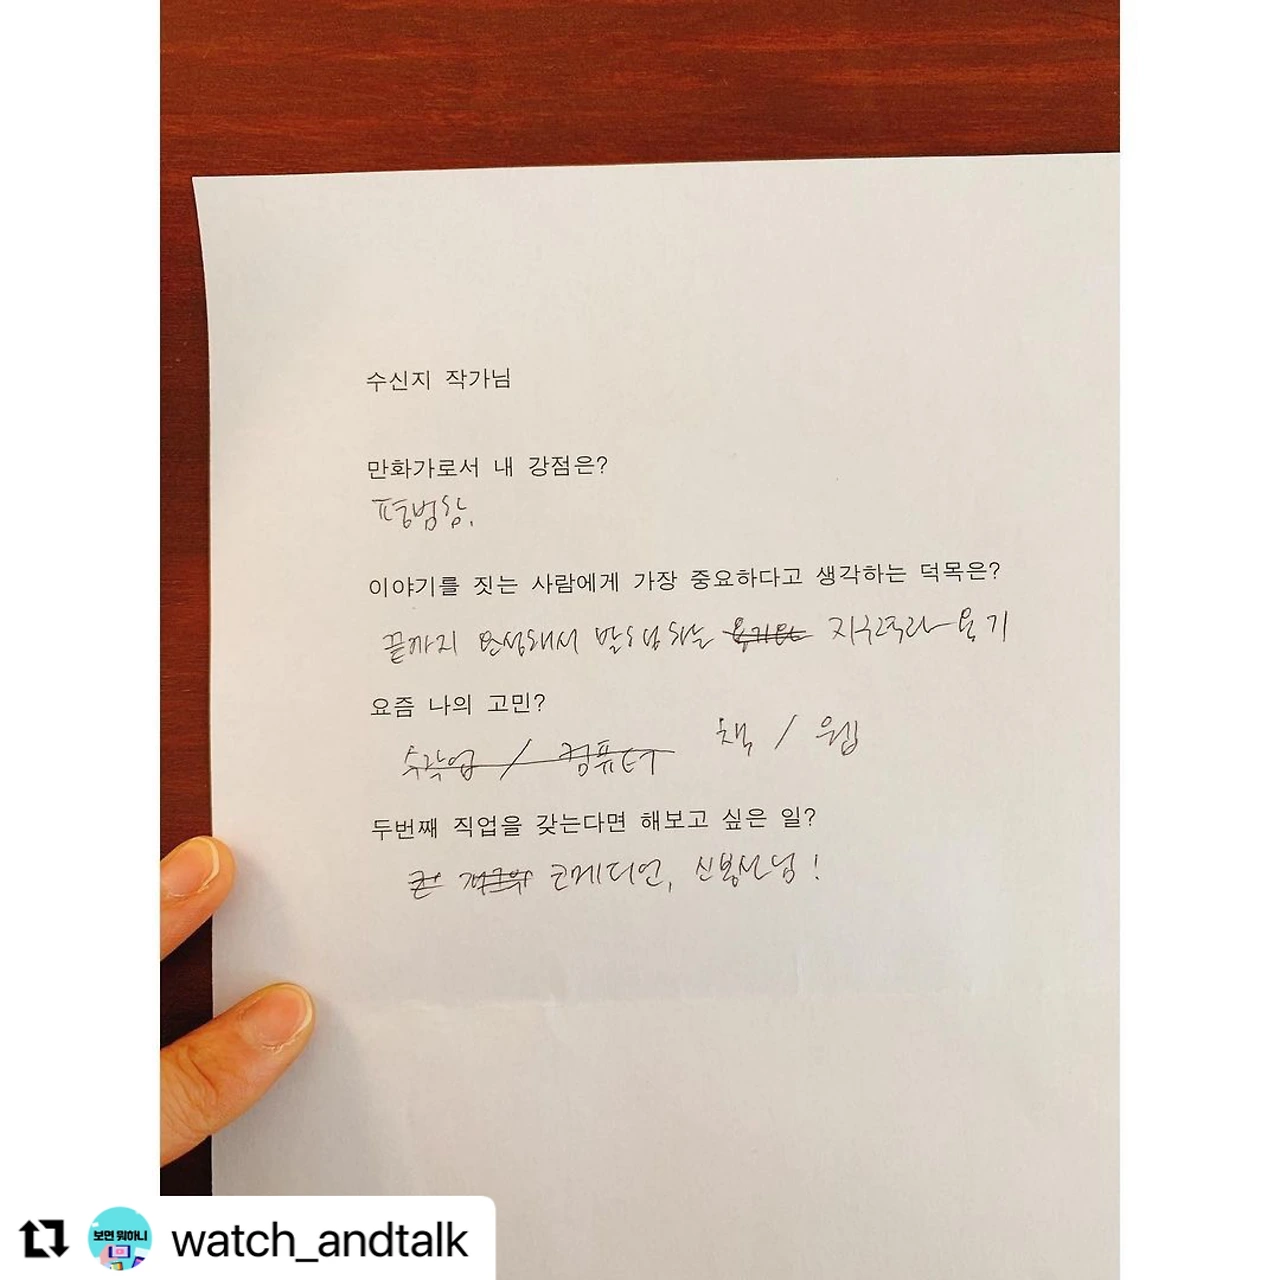 수신지 작가님
만화가로서 내 강점은?
평범함.
이야기를 짓는 사람에게 가장 중요하다고 생각하는 덕목은?
끝까지 완성해서 발행하는 용기와 지구력과 용기
요즘 나의 고민?
수작업 / 컴퓨터 책 / 웹
두번째 직업을 갖는다면 해보고 싶은 일?
코메디언, 신봉선님!
보면 뭐하니
watch_andtalk